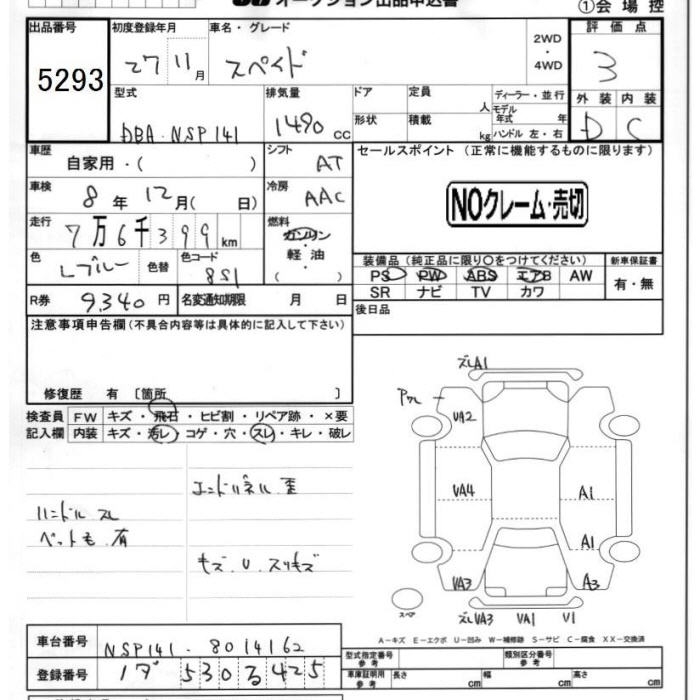 オークション出品申込書
①会場控
出品番号 初度登録年月 車名・グレード 評価点
5293 27 11月 スペイド 2WD・4WD 3
型式 排気量 ドア 定員 人 ディーラー・並行 外装 内装
DBA-NSP141 1490 cc 形状 積載 kg モデル年式 年 ハンドル 左・右 D C
車歴 シフト セールスポイント (正常に機能するものに限ります)
自家用・( ) AT
車検 8年 12月( 日) 冷房 AAC NOクレーム・売切
走行 7万6千399km 燃料 ガソリン・軽油・( )
装備品 (純正品に限り○をつけてください) 新車保証書
色 Lブルー 色替 色コード 8S1 PS PW ABS エアB AW 有・無
SR ナビ TV カワ
R券 9,340円 名変通知期限 月 日 後日品
注意事項申告欄(不具合内容等は具体的に記入して下さい)
修復歴 有 [箇所 ]
検査員 FW キズ・飛石・ヒビ割・リペア跡・×要
記入欄 内装 キズ・汚レ・コゲ・穴・スレ・キレ・破レ
ハンドル スレ
ペット毛 有
エンドパネル 歪
キズ U スリキズ
ズレA1
VA2
VA4 A1
A1
VA3 A3
スペア ズレVA3 VA1 V1
A-キズ E-エクボ U-凹み W-補修跡 S-サビ C-腐食 XX-交換済
車台番号 NSP141-8014162
型式指定番号 参考 類別区分番号 参考
登録番号 530 る 425
車庫証明用 参考 長さ cm 幅 cm 高さ cm